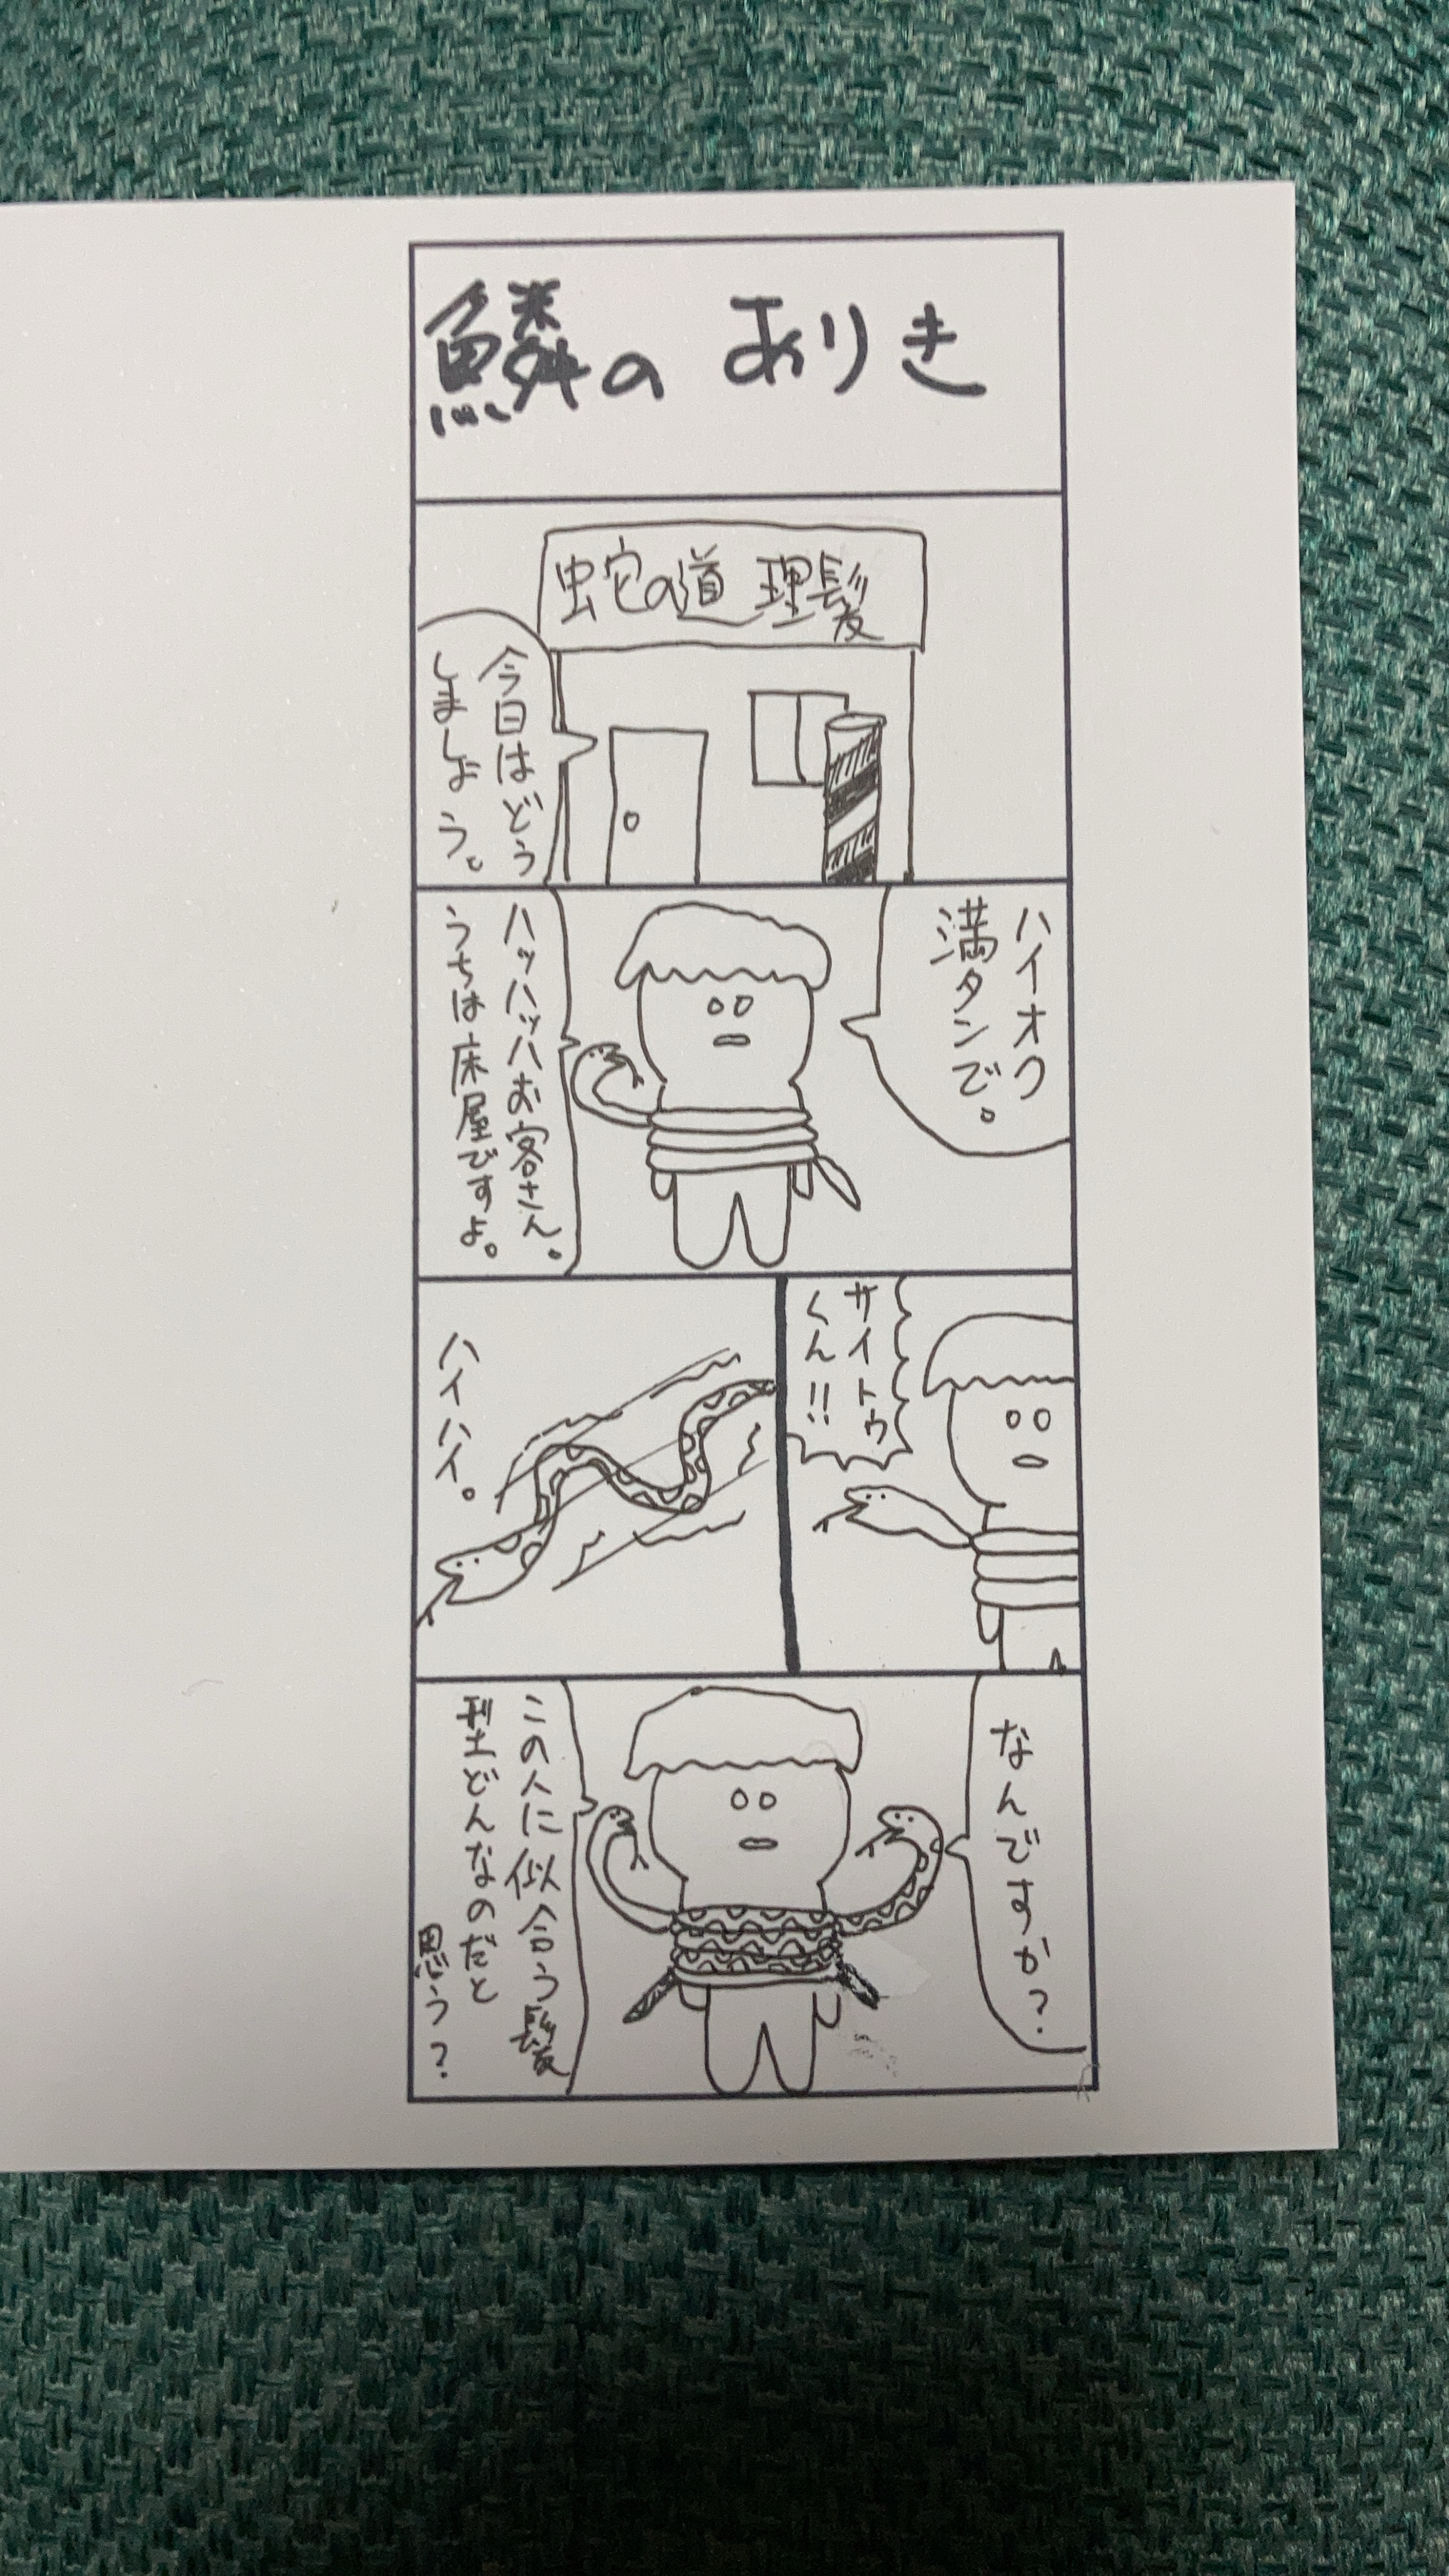 鱗のありき
蛇の道理髪
今日はどう
しましょう。
ハイオク
満タンで。
ハッハッハお客さん。
うちは床屋ですよ。
サイトウ
くん!!
ハイハイ。
なんですか?
この人に似合う髪
型どんなのだと
思う?